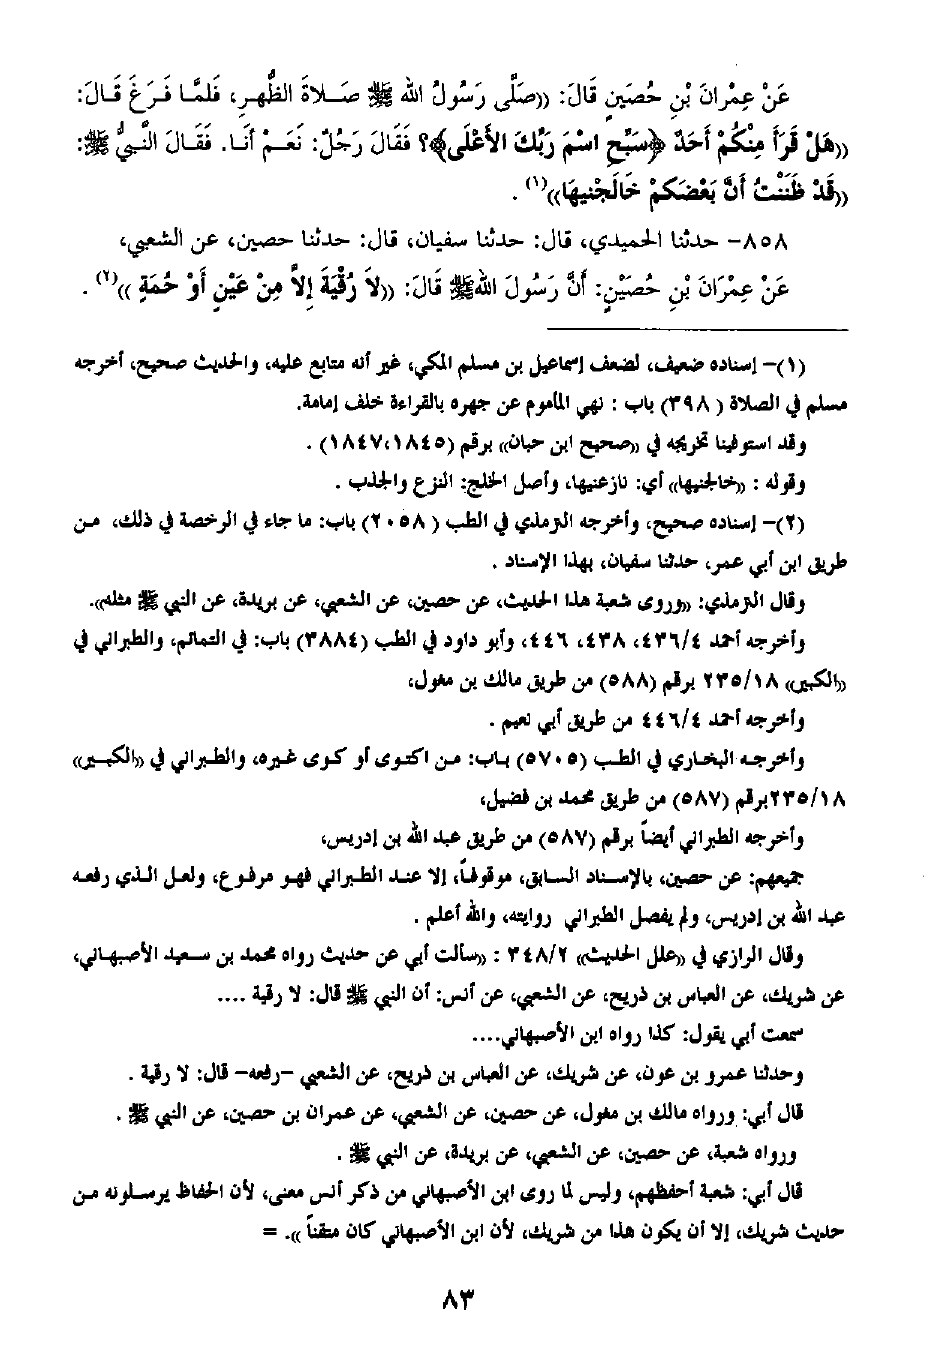 عَنْ عِمْرَانَ بْنِ حُصَيْنٍ قَالَ: ((صَلَّى رَسُولُ الله ﷺ صَـلاةَ الظُّهـرِ، فَلمَّـا فَـرَغَ قَـالَ:
((هَلْ قَرَأَ مِنْكُمْ أَحَدٌ ﴿سَبِّحِ اسْمَ رَبِّكَ الأَعْلَى﴾؟ فَقَالَ رَجُلٌ: نَعَـمْ أنَـا. فَقَـالَ النَّبِيُّ ﷺ:
((قَدْ ظَنَنْتُ أَنَّ بَعْضَكمْ خَالَجْنِيهَا))(١) .
٨٥٨- حدثنا الحميدي، قال: حدثنا سفيان، قال: حدثنا حصين، عن الشعبي،
عَنْ عِمْرَانَ بْنِ حُصَيْنٍ: أَنَّ رَسُولَ اللهﷺ قَالَ: ((لاَ رُقْيَةَ إِلاَّ مِنْ عَيْنٍ أَوْ حُمَةٍ ))(٢) .
(١)- إسناده ضعيف، لضعف إسماعيل بن مسلم المكي، غير أنه متابع عليه، والحديث صحيح، أخرجه
مسلم في الصلاة ( ٣٩٨) باب : نهي المأموم عن جهره بالقراءة خلف إمامة.
وقد استوفينا تخريجه في ((صحيح ابن حبان)) برقم (١٨٤٧،١٨٤٥) .
وقوله : ((خالجنيها)) أي: نازعنيها، وأصل الخلج: النزع والجذب .
(٢)- إسناده صحيح، وأخرجه الترمذي في الطب ( ٢٠٥٨) باب: ما جاء في الرخصة في ذلك، من
طريق ابن أبي عمر، حدثنا سفيان، بهذا الإسناد .
وقال الترمذي: ((وروى شعبة هذا الحديث، عن حصين، عن الشعبي، عن بريدة، عن النبي ﷺ مثله)).
وأخرجه أحمد ٤٣٦/٤، ٤٣٨، ٤٤٦، وأبو داود في الطب (٣٨٨٤) باب: في التمائم، والطبراني في
((الكبير)) ٢٣٥/١٨ برقم (٥٨٨) من طريق مالك بن مغول،
وأخرجه أحمد ٤٤٦/٤ من طريق أبي نعيم .
وأخرجـه البخـاري في الطـب (٥٧٠٥) بـاب: مـن اكتـوى أو كـوى غـيره، والطـبراني في ((الكبـير))
٢٣٥/١٨برقم (٥٨٧) من طريق محمد بن فضيل،
وأخرجه الطبراني أيضاً برقم (٥٨٧) من طريق عبد الله بن إدريس،
جميعهم: عن حصين، بالإسناد السابق، موقوفاً، إلا عند الطبراني فهو مرفوع، ولعل الذي رفعه
عبد الله بن إدريس، ولم يفصل الطبراني روايته، والله أعلم .
وقال الرازي في ((علل الحديث)) ٣٤٨/٢ : ((سألت أبي عن حديث رواه محمد بن سعيد الأصبهاني،
عن شريك، عن العباس بن ذريح، عن الشعبي، عن أنس: أن النبي ﷺ قال: لا رقية ....
سمعت أبي يقول: كذا رواه ابن الأصبهاني....
وحدثنا عمرو بن عون، عن شريك، عن العباس بن ذريح، عن الشعبي -رفعه- قال: لا رقية .
قال أبي: ورواه مالك بن مغول، عن حصين، عن الشعبي، عن عمران بن حصين، عن النبي ﷺ .
ورواه شعبة، عن حصين، عن الشعبي، عن بريدة، عن النبي ﷺ .
قال أبي: شعبة أحفظهم، وليس لما روى ابن الأصبهاني من ذكر أنس معنى، لأن الحفاظ يرسلونه من
حديث شريك، إلا أن يكون هذا من شريك، لأن ابن الأصبهاني كان متقناً )). =
٨٣